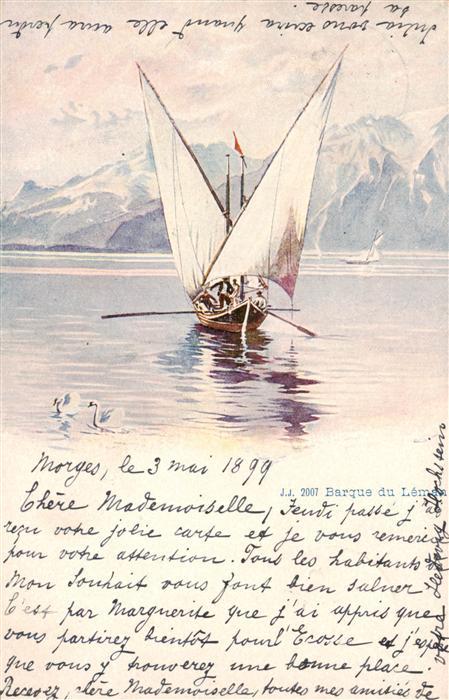 Morges, le 3 mai 1899
J.J. 2007 Barque du Léman
Chère Mademoiselle, Jeudi passé j'ai
reçu votre jolie carte et je vous remercie
pour votre attention. Tous les habitants de
Mon Souhait vous font bien saluer
C'est par Marguerite que j'ai appris que
vous partirez bientôt pour l'Ecosse et j'espère
que vous y trouverez une bonne place.
Recevez, chère Mademoiselle, toutes mes amitiés de
votre Hedwig
vous écrira quand elle aura perdu
sa paresse.